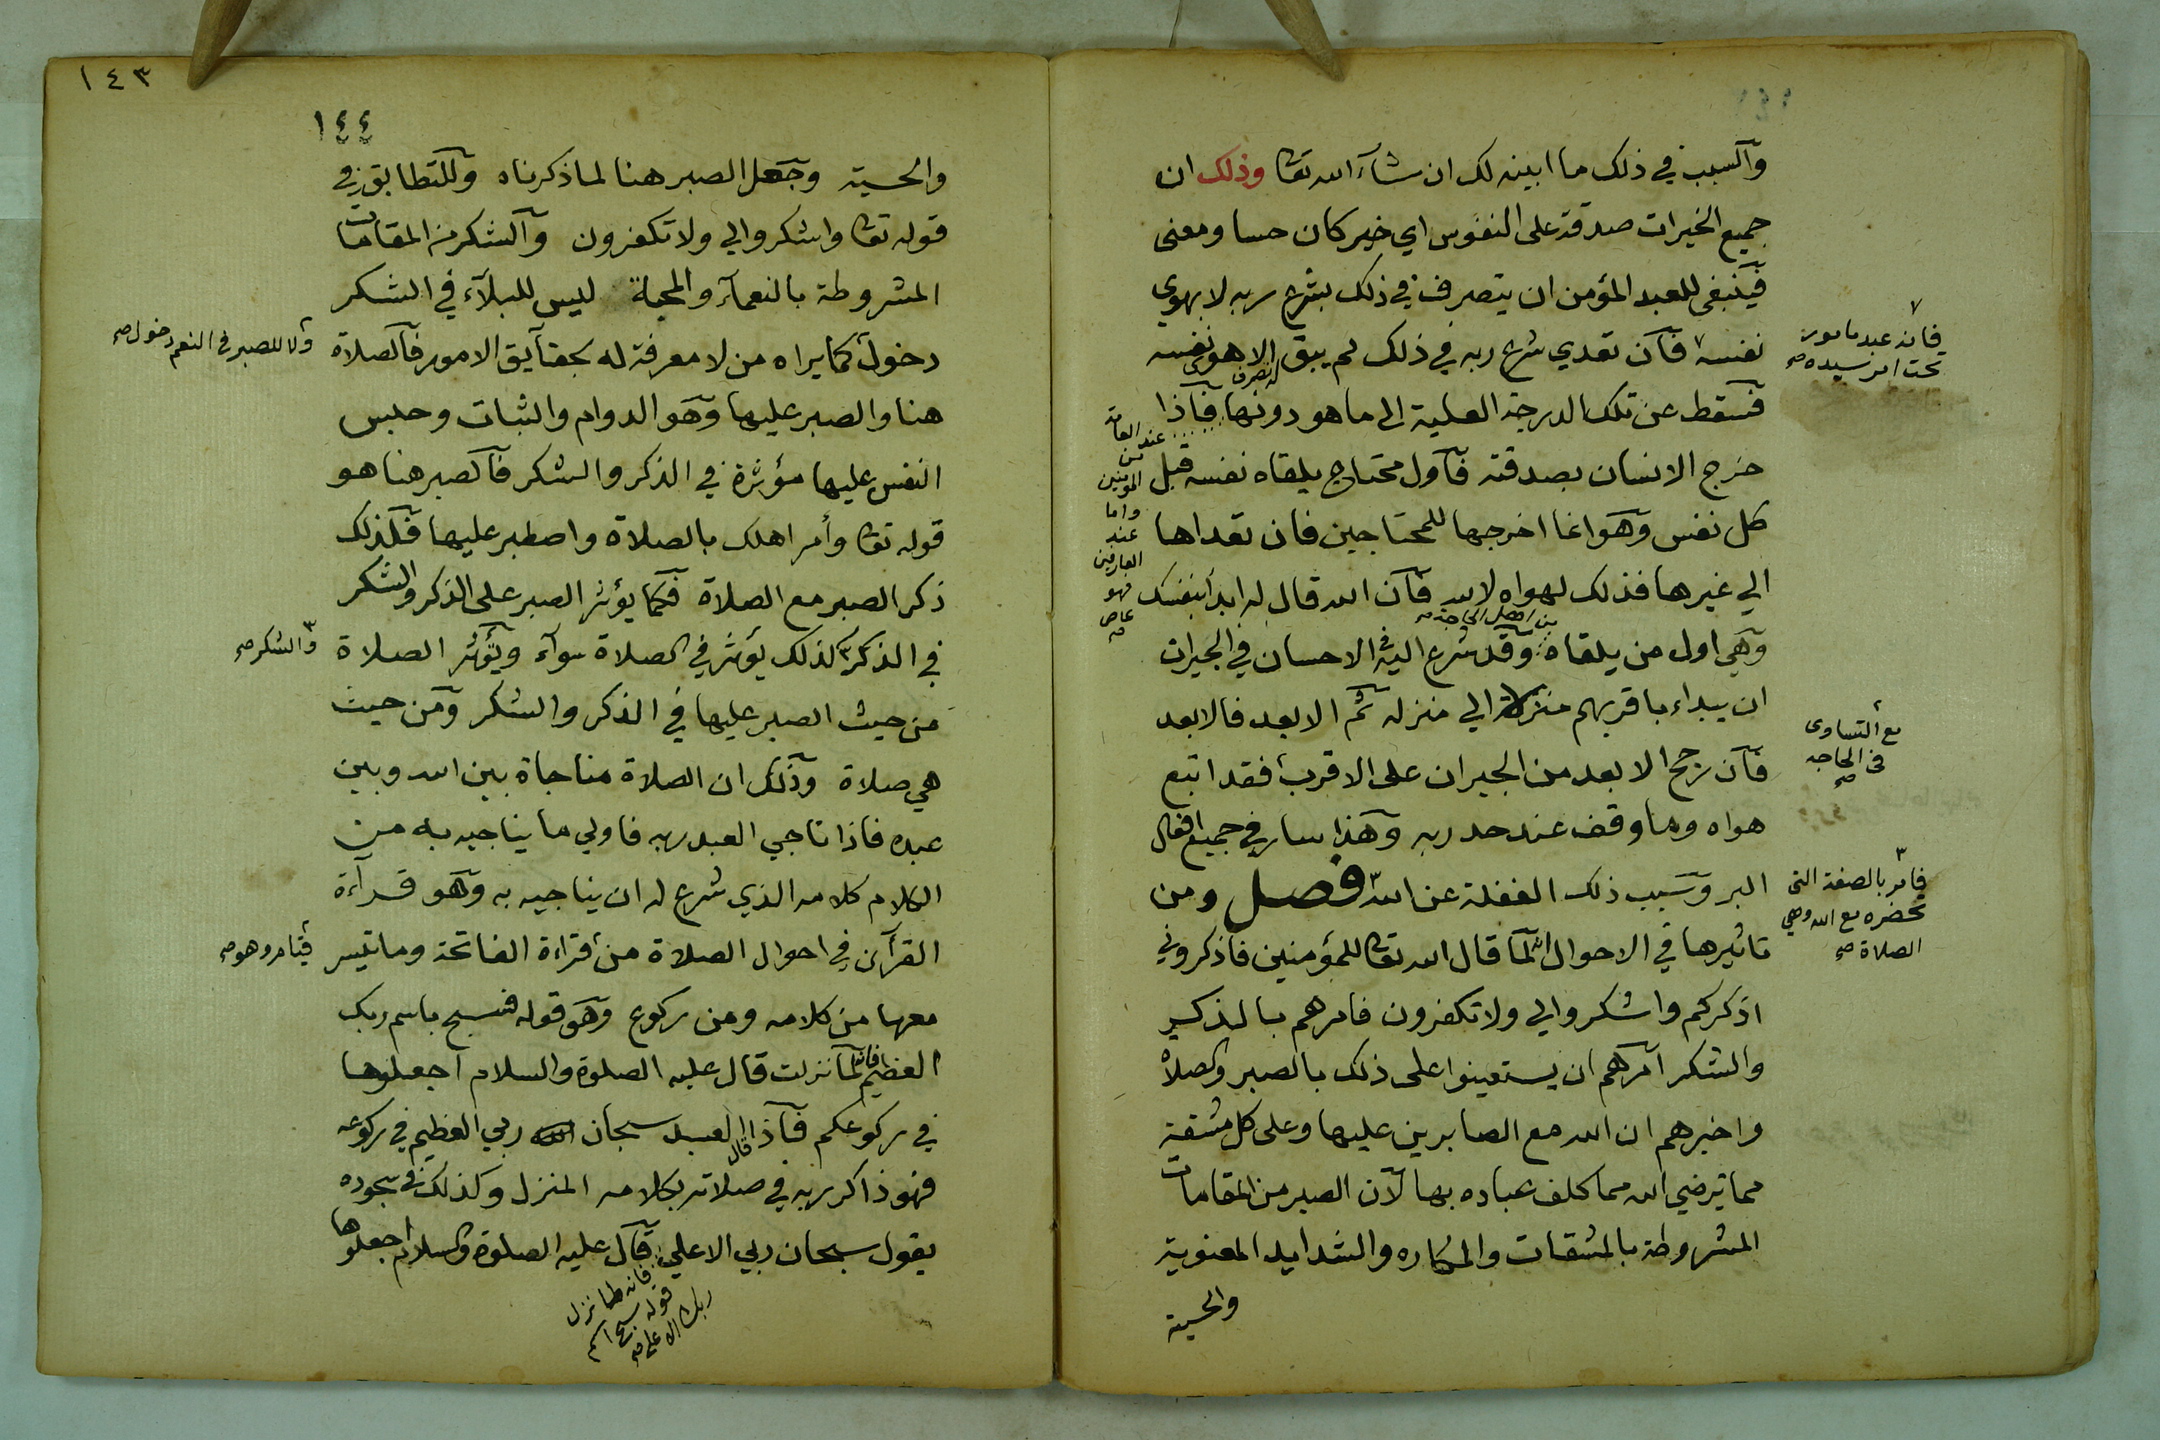 والسبب في ذلك ما ابينه لك ان شآء الله تعا وذلك ان
جميع الخيرات صدقة على النفوس اي خير كان حسا ومعنى
فينبغي للعبد المؤمن ان يتصرف في ذلك بشرع ربه لا بهوي
نفسه فان تعدي شرع ربه في ذلك لم يبق له تصرف الا هوى نفسه
فسقط عن تلك الدرجة العلية الى ما هو دونها فاذا
خرج الانسان بصدقته فاول محتاج يلقاه نفسه قبل
كل نفس وهو انما اخرجها للمحتاجين فان تعداها
الي غيرها فذلك لهواه لا لله فان الله قال له ابدأ بنفسك
وهي اول من يلقاه من اهل الحاجة وقد شرع اليه في الاحسان في الجيران
ان يبداء باقربهم منزلة الي منزله ثم الابعد فالابعد
فان رجح الابعد من الجيران على الاقرب فقد اتبع
هواه وما وقف عند حد ربه وهذا سار في جميع افعال
البر وسبب ذلك الغفلة عن الله فصل ومن
تاثيرها في الاحوال انه لما قال الله تعا للمؤمنين فاذكروني
اذكركم واشكروا لي ولا تكفرون فامرهم بالذكر
والشكر امرهم ان يستعينوا على ذلك بالصبر والصلاة
واخبرهم ان الله مع الصابرين عليها وعلى كل مشقة
مما ترضي الله مما كلف عباده بها لان الصبر من المقامات
المشروطة بالمشقات والمكاره والشدايد المعنوية
والحسية
فانه عبد مامور
تحت امر سيده صح
عند العامة
من
المؤمنين
واما
عند
العارفين
فهو
عاص
صح
مع التساوى
فى الحاجه
صح
فامر بالصفة التى
تحضره مع الله وهي
الصلاة صح
١٤٣
١٤٤
والحسية وجعل الصبر هنا لما ذكرناه وللتطابق في
قوله تعا واشكروا لي ولا تكفرون والشكر من المقامات
المشروطة بالنعمآء والمحبة ليس للبلآء في الشكر
دخول كما يراه من لا معرفة له بحقآيق الامور فالصلاة
هنا والصبر عليها وهو الدوام والثبات وحبس
النفس عليها مؤثرة في الذكر والشكر فالصبر هنا هو
قوله تعا وأمر اهلك بالصلاة واصطبر عليها فلذلك
ذكر الصبر مع الصلاة فكما يؤثر الصبر على الذكر والشكر
في الذكر كذلك يؤثر في الصلاة سوآء ويؤثر الصلاة
من حيث الصبر عليها في الذكر والشكر ومن حيث
هي صلاة وذلك ان الصلاة مناجاة بين الله وبين
عبده فاذا ناجي العبد ربه فاولي ما يناجيه به من
الكلام كلامه الذي شرع له ان يناجيه به وهو قرآءة
القرآن في احوال الصلاة من قراءة الفاتحة وما تيسر
معها من كلامه ومن ركوع وهو قوله فسبح باسم ربك
العظيم فانه لما نزلت قال عليه الصلوة والسلام اجعلوها
في ركوعكم فاذا قال العبد سبحان ربي العظيم في ركوعه
فهو ذاكر ربه في صلاته بكلامه المنزل وكذلك في سجوده
يقول سبحان ربي الاعلي قال عليه الصلوة والسلام اجعلوها
ولا للصبر في النعم دخول صح
والشكر صح
قيام وهو صح
فانه لما نزل
قوله سبح اسم
ربك الاعلى صح